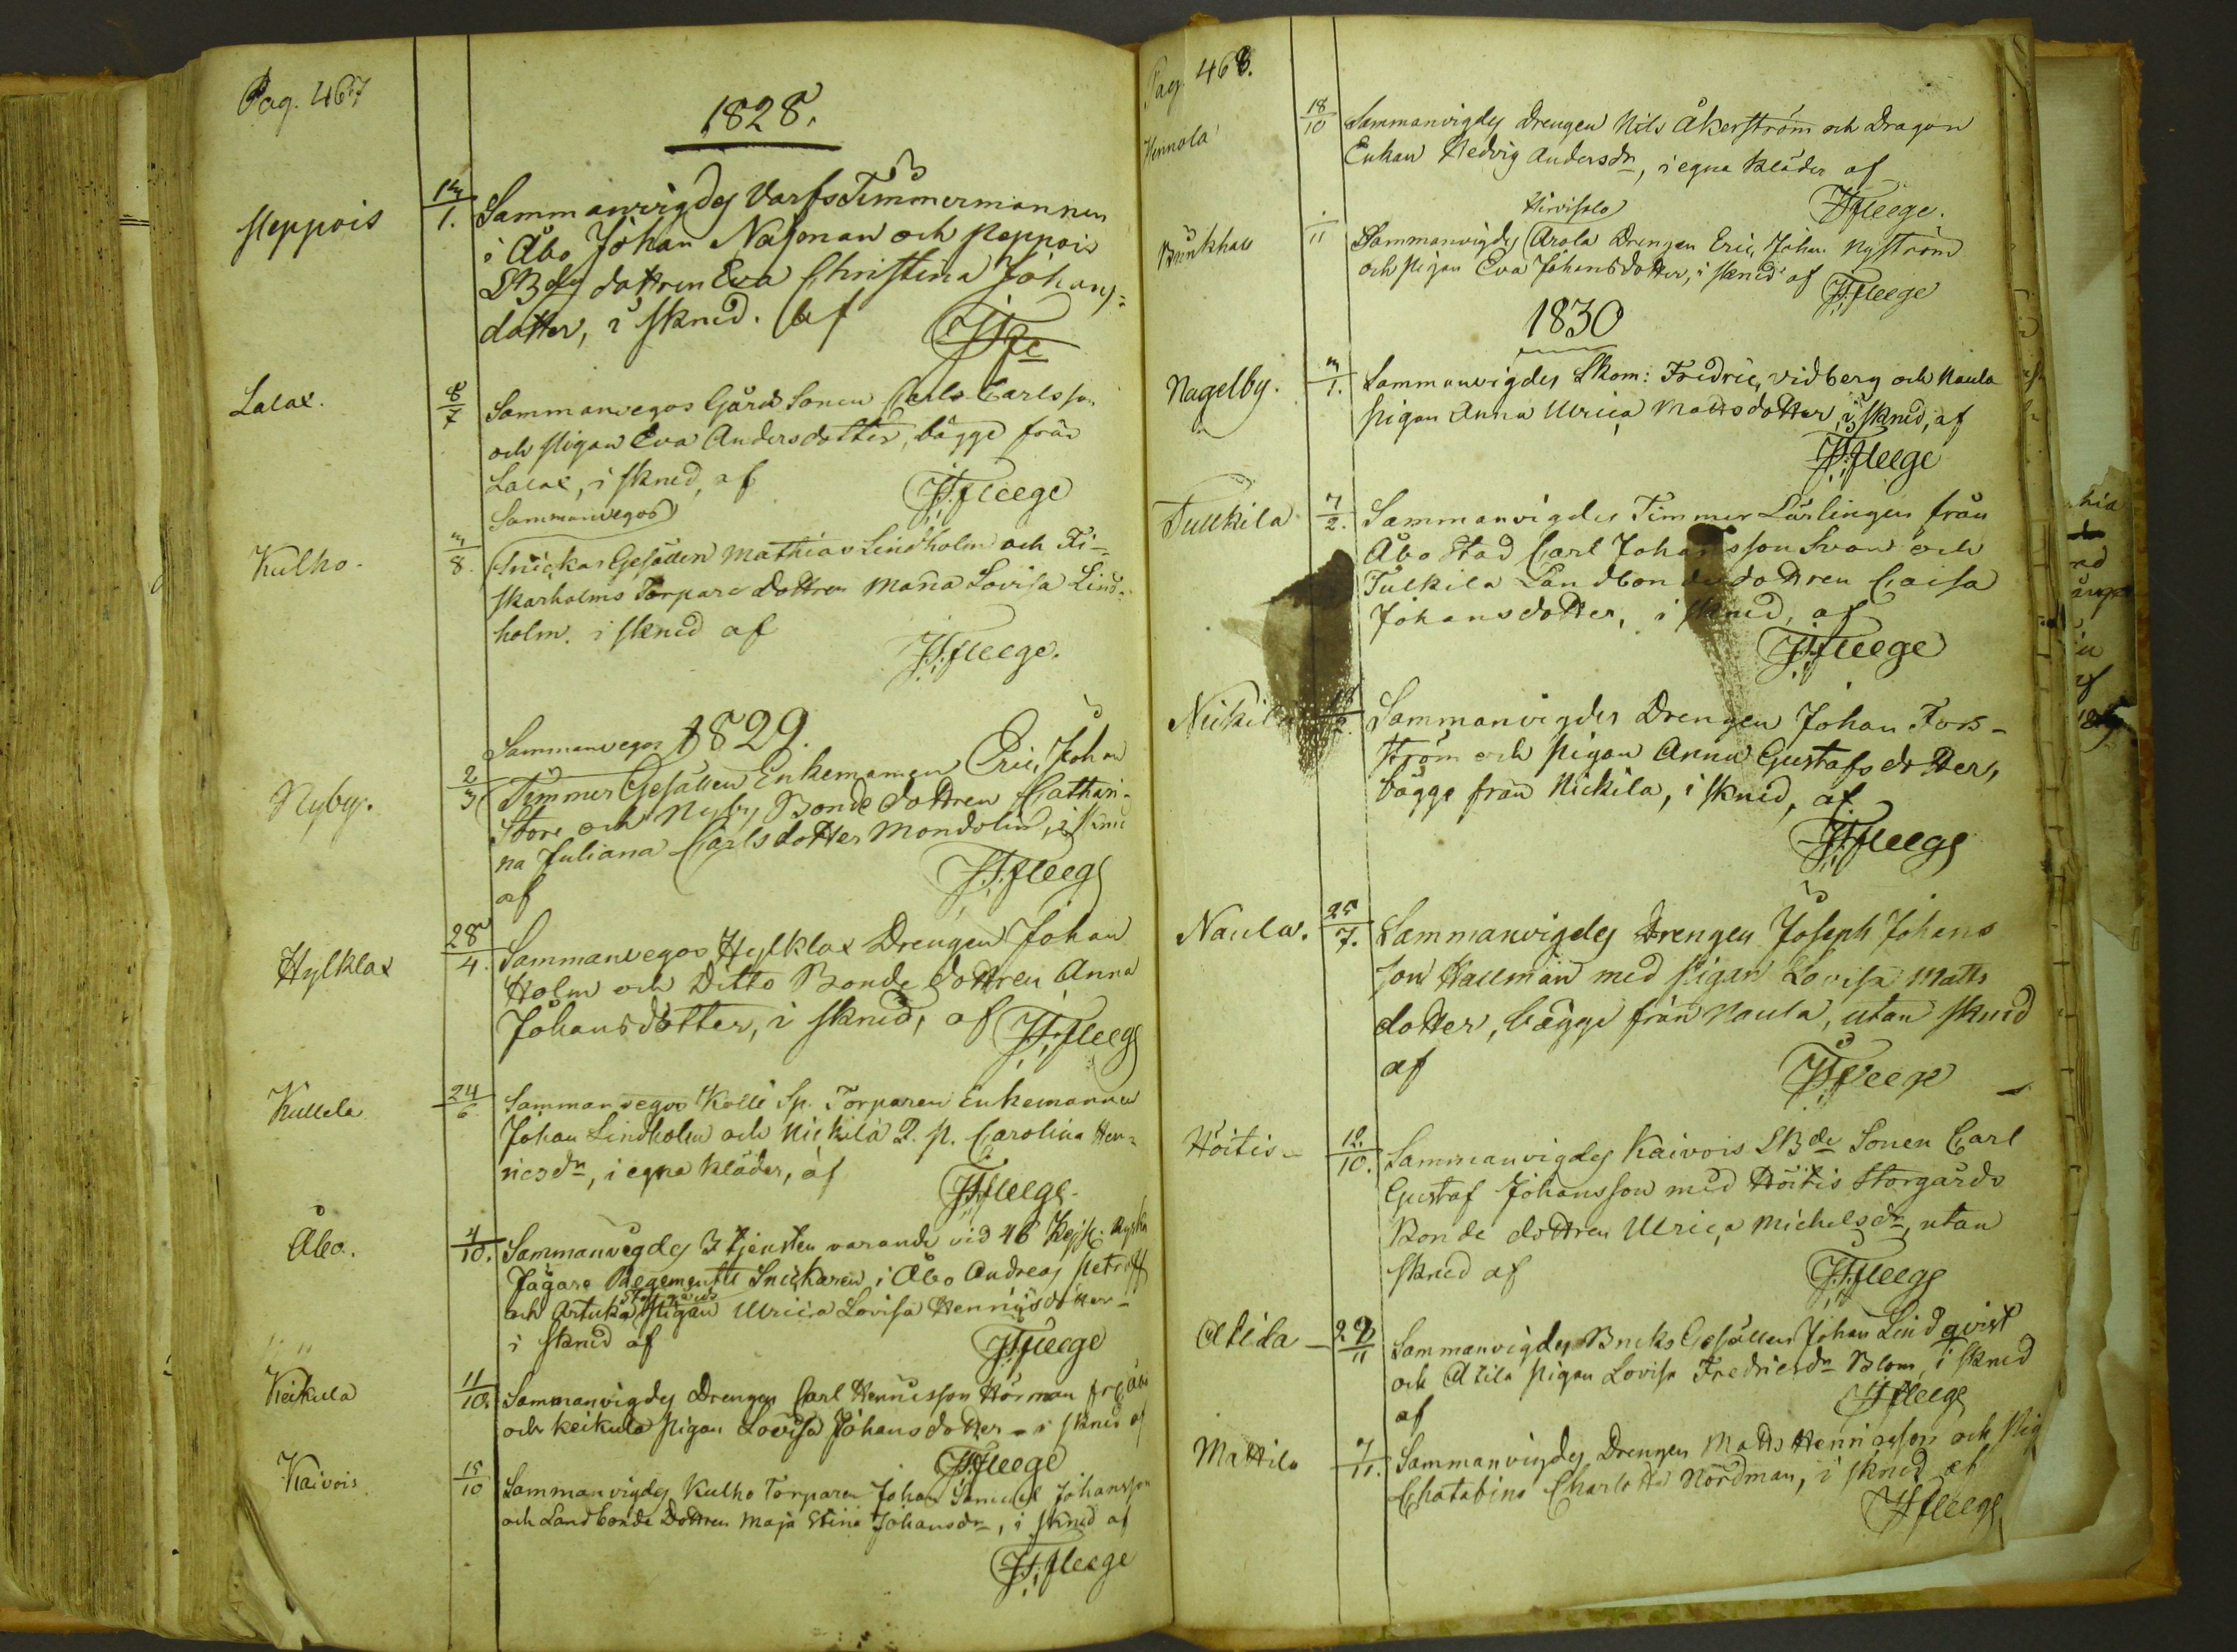 Pag. 467
1828.
Peppois
1.
Sammanvigdes Varfs Timmermannen
i Åbo Johan Nasonan och Peppois
LBde dottren Eva Christina Johans=
dotter, i skrud. af
Lalax.
8/7
Sammanvegos Gårds Sonen Carls Carlsson
och Pigan Eva Andersdotter, bägge från
Lalax, i skrud, af
JFleege
Sammanvegos
Kulho.
8.
Snickar Gesällen Mathias Lindholm och
skarholms Torpare dottren Maria Lovisa Lind=
holm. i skrud af
JFleege.
1829.
Sammanvegos
Nyby.
2/3
Timmer Gesällen Enkemannen Eric Johan
Store och Nyby Bonde dottren Cathari-
na Juliana Carlsdotter Mondolin, i skrud
af
JFleege
Hylklax
28/4.
Sammanvegos Hylklax Drengen Johan
Holm och Ditto Bonde dottren Anna
Johansdotter, i skrud, af JFleege
Kullela
24/6.
Sammanvegos Kolli Sp. Torparen Enkemannen
Johan Lindholm och Nickila P. p. Carolina Hen=
ricsdr, i egna kläder, af
JFleege
Åbo.
4/10.
Sammanvigdes I tjensten varande vid 46 Kejs. Ryska
Jägare Regementte Snickaren i Åbo Andreas Petroff
Storgårds
och Artuka Pigan Ulrica Lovisa Henricsdotter-
i skrud af
JFleege
Keikula
11/10.
Sammanvigdes Drengen Carl Henricsson Hörman från Åbo
och Keikula Pigan Lovisa Johansdotter - i skrud af
JFleege
Kaivois
15/10
Sammanvigdes Kulho Torparen Johan Samuel Johansson
och Landbonde Dottren Maja Stina Johansdr, i skrud af
JFleege
Pag. 468.
Hennola
18/10
Sammanvigdes Drengen Nils Åkerström och Dragon
Enkan Hedvig Andersdr, i egna kläder af
JFleege.
Hirvisalo
Brinkhall
11
Sammanvigdes Arola Drengen Eric Johan Nyström
och Pigan Eva Johansdotter, i skrud af JFleege
1830
Nagelby.
1.
Sammanvigdes Skom: Fredric Vidberg och Naula
Pigan Anna Ulrica Mattsdotter, i skrud, af
JFleege
Tulkila
7/2.
Sammanvigdes Timmer Lärlingen från
Åbo Stad Carl Johansson Svan och
Tulkila Landbonde dottren Caisa
Johansdotter, i skrud, af
JFleege
Nickila
Sammanvigdes Drengen Johan Fors-
ström och Pigan Anna Gustafsdotter,
bägge från Nickila, i skrud, af
JFleege
Naula.
25/7.
Sammanvigdes Drengen Joseph Johans
son Hallman med Pigan Lovisa Matts
dotter, bägge från Naula, utan skrud
af
JFleege
Höitis
12/10.
Sammanvigdes Kaivois LBde Sonen Carl
Gustaf Johansson med Höitis Storgårds
Bonde dottren Ulrica Michelsdr, utan
skrud af
JFleege
Atila
11
Sammanvigdes Bruks Gesällen Johan Lindqvist
och Atila Pigan Lovisa Fredricsdr Blom, i skrud
af
JFleege
Mattila
7/11.
Sammanvigdes Drengen Matts Henricsson och Pig
Charlotta Nordman, i skrud af
JFleege